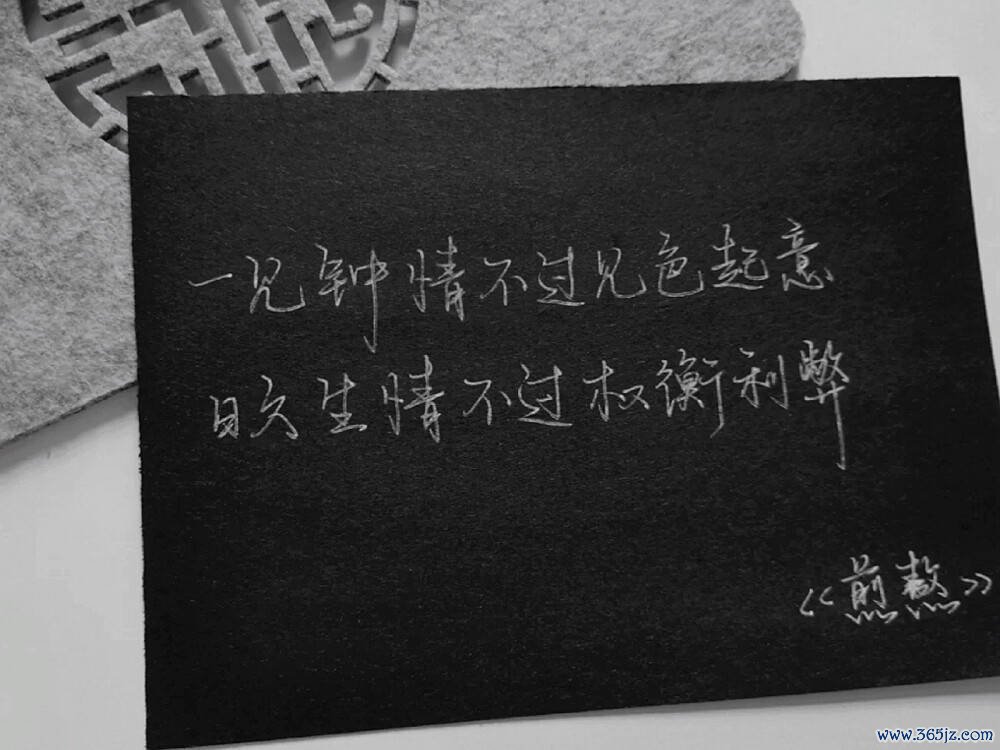 一见钟情不过见色起意
日久生情不过权衡利弊
《煎熬》
www.365jz.com